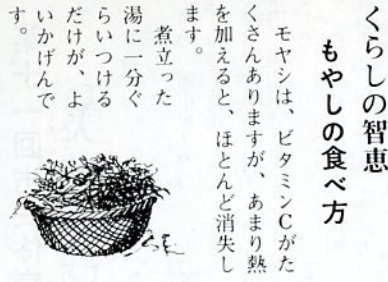 くらしの智恵
もやしの食べ方
モヤシは、ビタミンCがた
くさんありますが、あまり熱
を加えると、ほとんど消失し
ます。
煮立った
湯に一分ぐ
らいつける
だけが、よ
いかげんで
す。